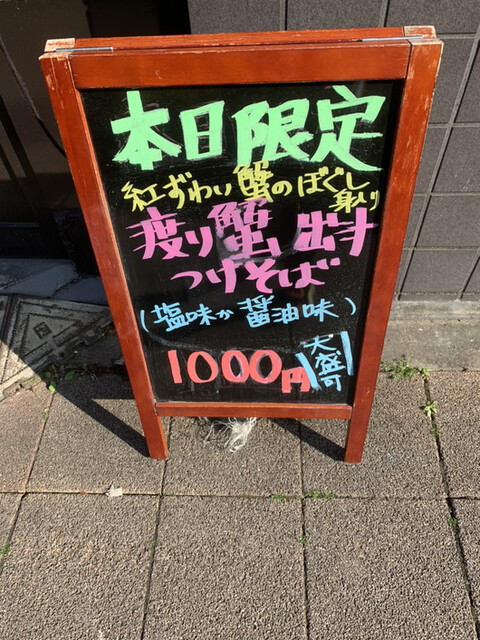 本日限定
紅ずわい蟹のほぐし身入り
渡り蟹い出す
つけそば
(塩味か醤油味)
1000円
大盛可